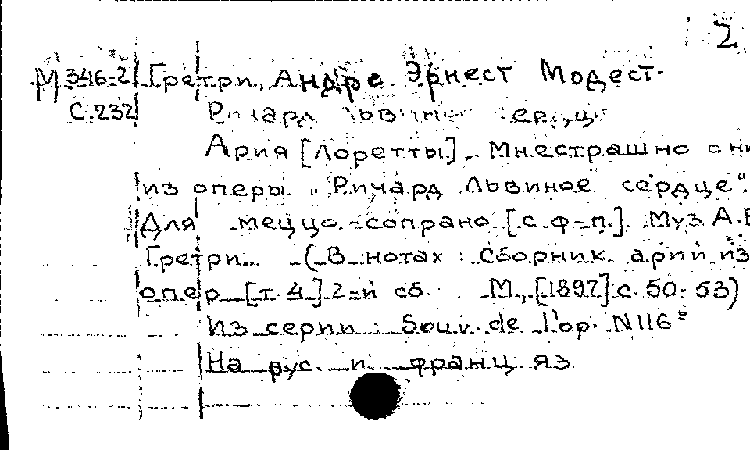 2
М 346-2 Гретри, Андре Эрнест Модест.
С.232 Ричард Львиное сердце
Ария [Лоретты]. Мне страшно они
из оперы "Ричард Львиное сердце".
Для меццо-сопрано [с ф-п.]. Муз А.
Гретри. (В нотах: Сборник арий из
опер [т. 4] 2-й сб. М., [1897] с. 50-53)
Из серии: Souv. de l'op. N116
На рус. и франц яз